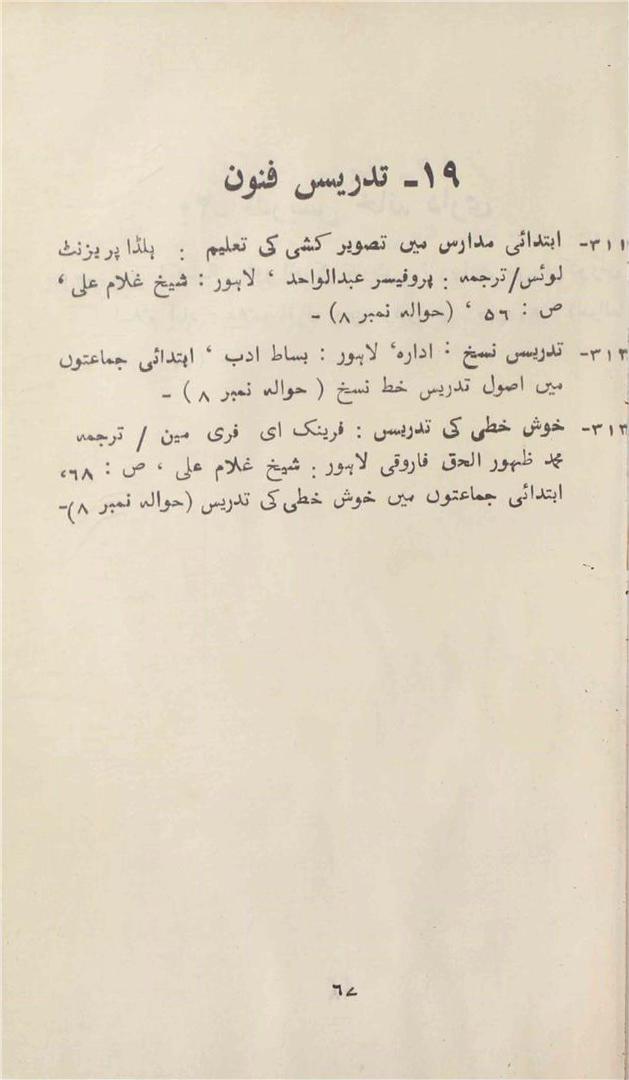 ۱۹۔ تدریس فنون
۳۱۱۔ ابتدائی مدارس میں تصویر کشی کی تعلیم : ہلڈا پریزنٹ
لوئس/ترجمہ : پروفیسر عبدالواحد ، لاہور : شیخ غلام علی ،
ص : ۵۶ ، (حوالہ نمبر ۸) ۔
۳۱۲۔ تدریس نسخ : ادارہ، لاہور : بساط ادب ، ابتدائی جماعتوں
میں اصول تدریس خط نسخ ( حوالہ نمبر ۸ ) ۔
۳۱۳۔ خوش خطی کی تدریس : فرینک ای فری مین / ترجمہ
محمد ظہور الحق فاروقی لاہور : شیخ غلام علی ، ص : ۶۸،
ابتدائی جماعتوں میں خوش خطی کی تدریس (حوالہ نمبر ۸)۔
۶۷